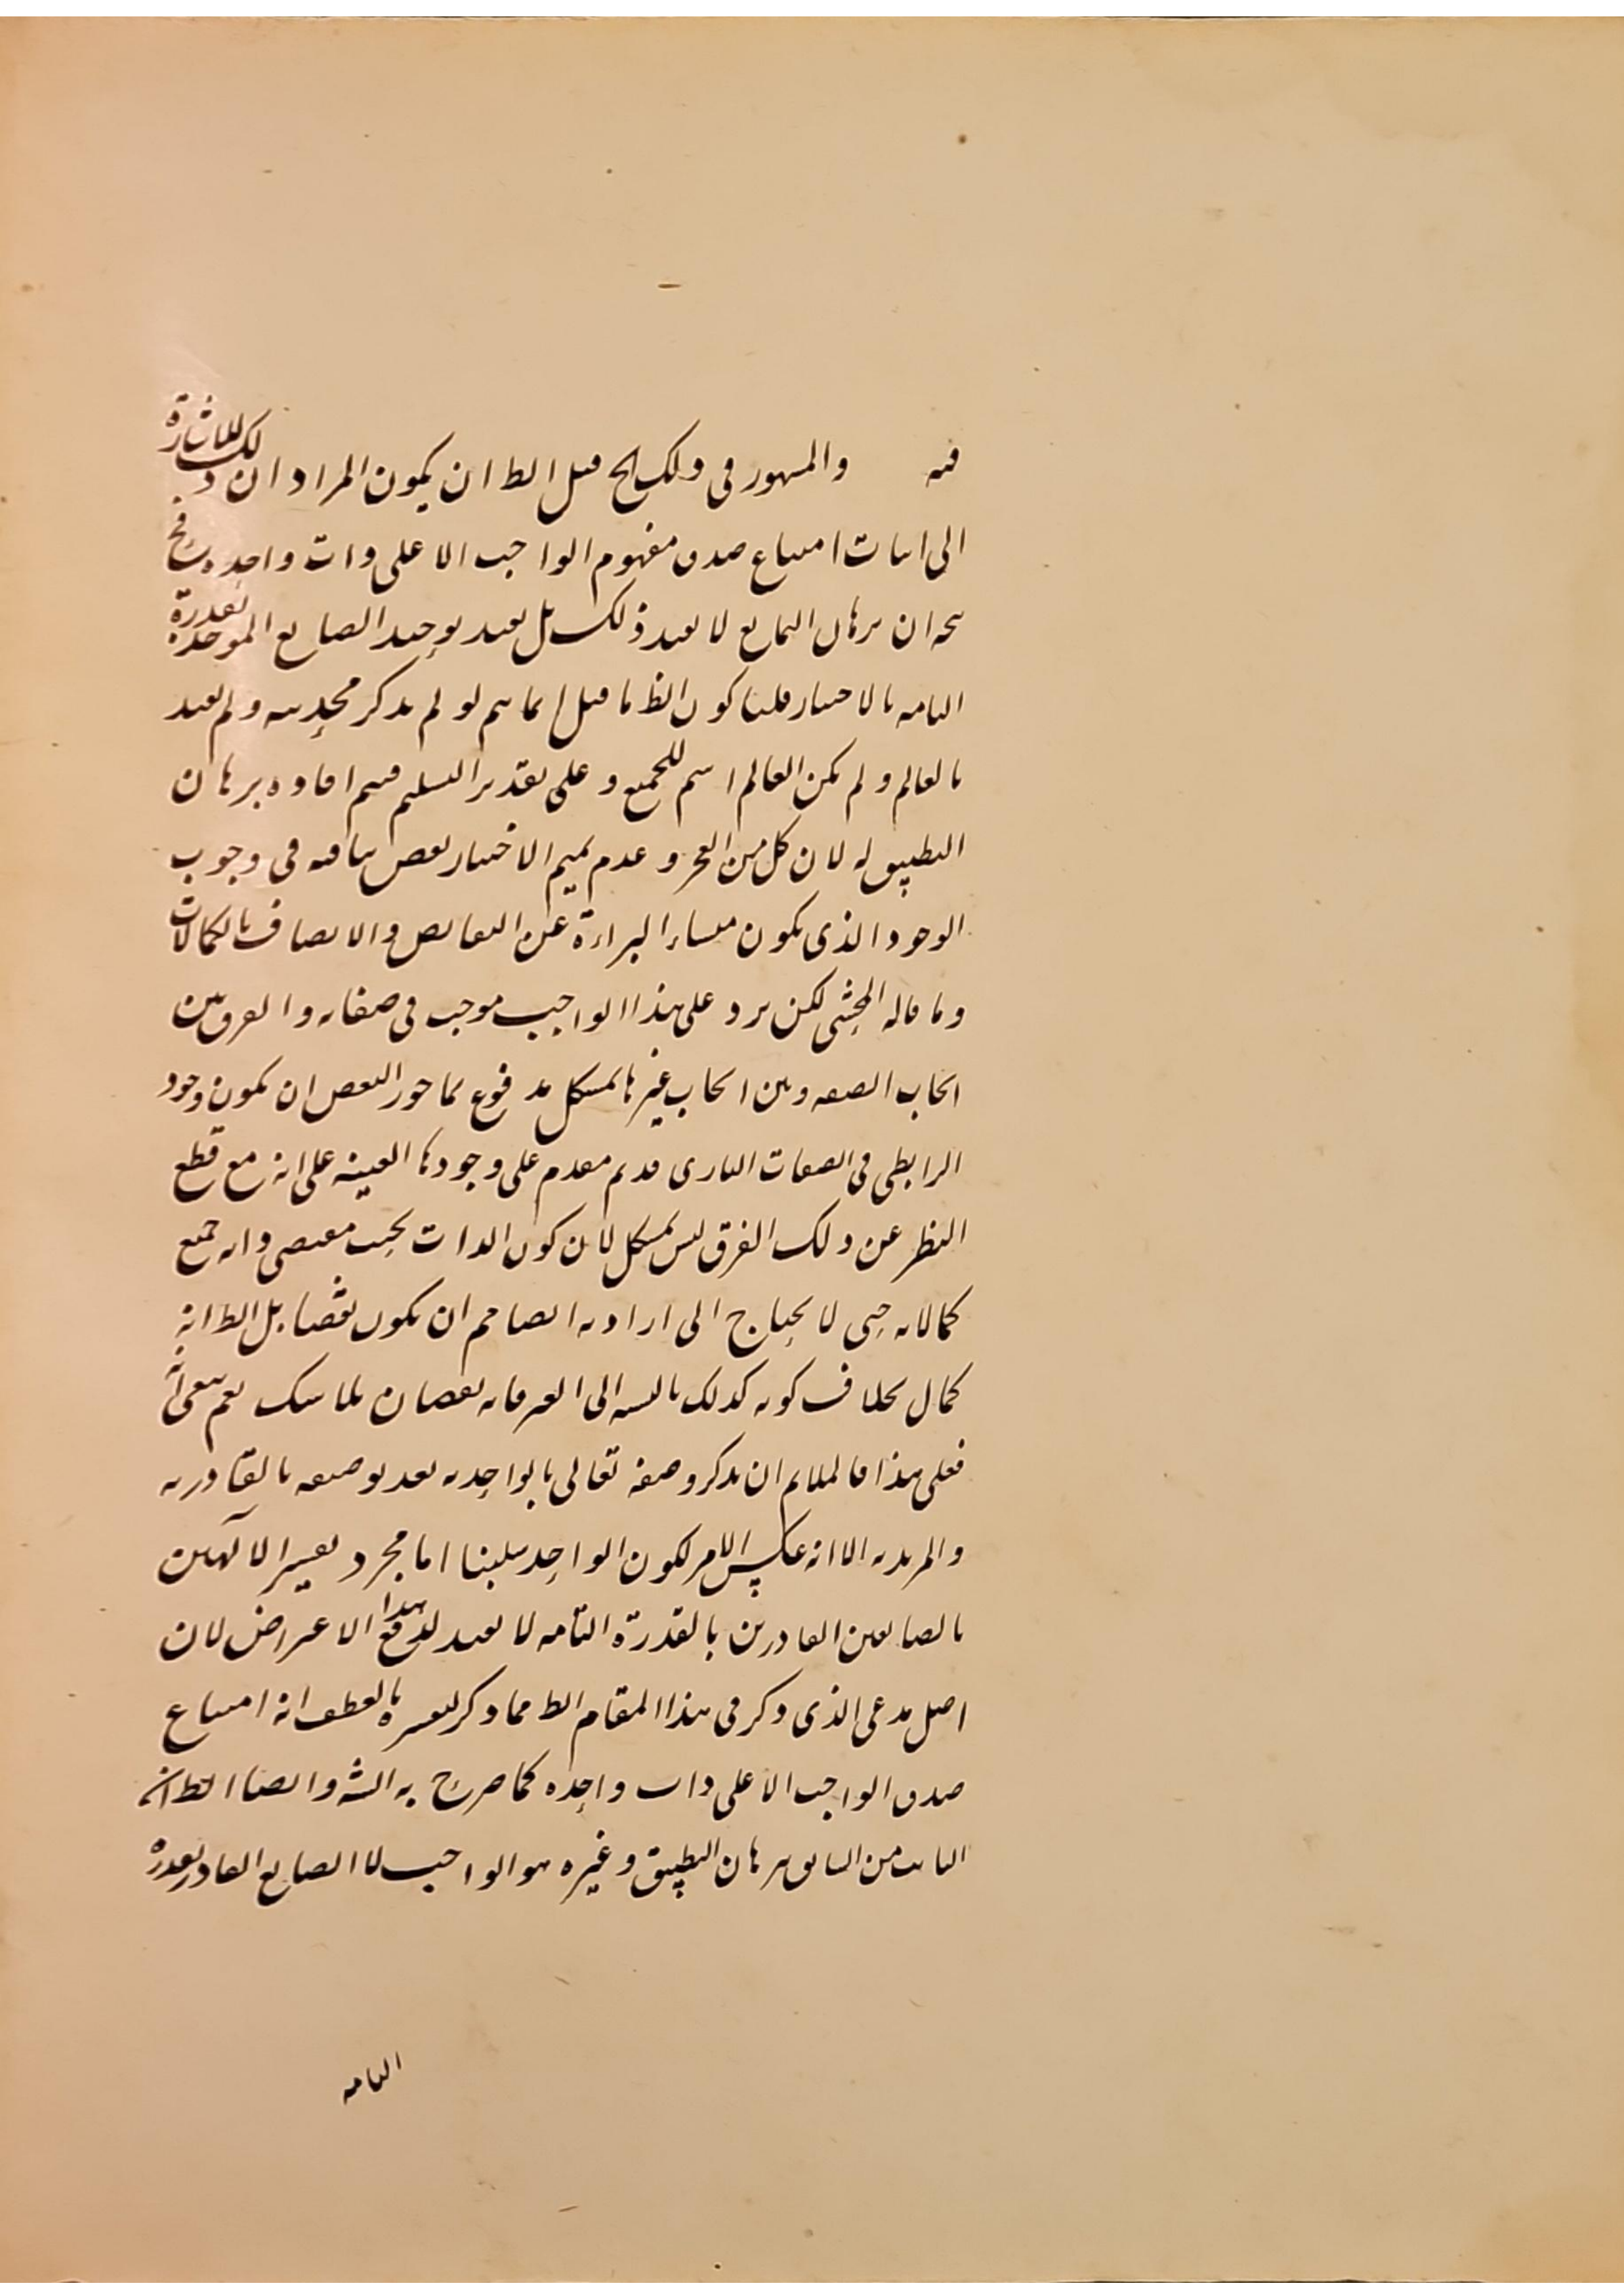 فيه والمشهور في ذلك الخ قيل الظ ان يكون المراد ان ذلك للاشارة
الى اثبات امتناع صدق مفهوم الواجب الا على ذات واحدة
ان برهان التمانع لا يفيد ذلك بل يفيد توحيد الصانع الموحد بقدرة
التامه بالاختيار قلنا كون الظ ما قيل انما يتم لو لم يذكر ولم يقيد
بالعالم ولم يكن العالم اسم للجميع و على تقدير التسليم فيتم افاده برهان
التطبيق له لان كل من العجز و عدم تميم الاختيار نقص ينافيه في وجوب
الوجود الذى يكون منشاء البراءة عن النقايص والاتصاف بالكمالات
وما قاله المحشى لكن يرد على هذا الواجب موجب في صفاته والفرق بين
ايجاب الصفه و بين ايجاب غيرها بمشكل مدفوع بما جوز البعض ان يكون وجود
الرابطى في الصفات البارى قديم مقدم على وجودها العينيه على انه مع قطع
النظر عن ذلك الفرق ليس بمشكل لان كون الذات بحيث مقتضى ذاته جميع
كمالاته حتى لا يحتاج الى ارادته ايضا حم ان يكون نقصا بل الظ انه
كمال بخلاف كونه كذلك بالنسبه الى الغير فانه نقصان بلا شك نعم بقى انه
فعلى هذا فالملايم ان يذكر وصفه تعالى بالواحديه بعد توصيفه بالقادريه
والمريديه الا انه عكس الامر لكون الواحد سلبيا اما مجرد تفسير الالهين
بالصانعين القادرين بالقدرة التامه لا يفيد لدفع هذا الاعتراض لان
اصل مدعى الذى ذكر في هذا المقام الظ مما ذكر تفسيره بالعطف انه امتناع
صدق الواجب الا على ذات واحده كما صرح به الشه وايضا الظ انه
الثابت من السابق ببرهان التطبيق وغيره هو الواجب لا الصانع القادر بقدرة
التامه